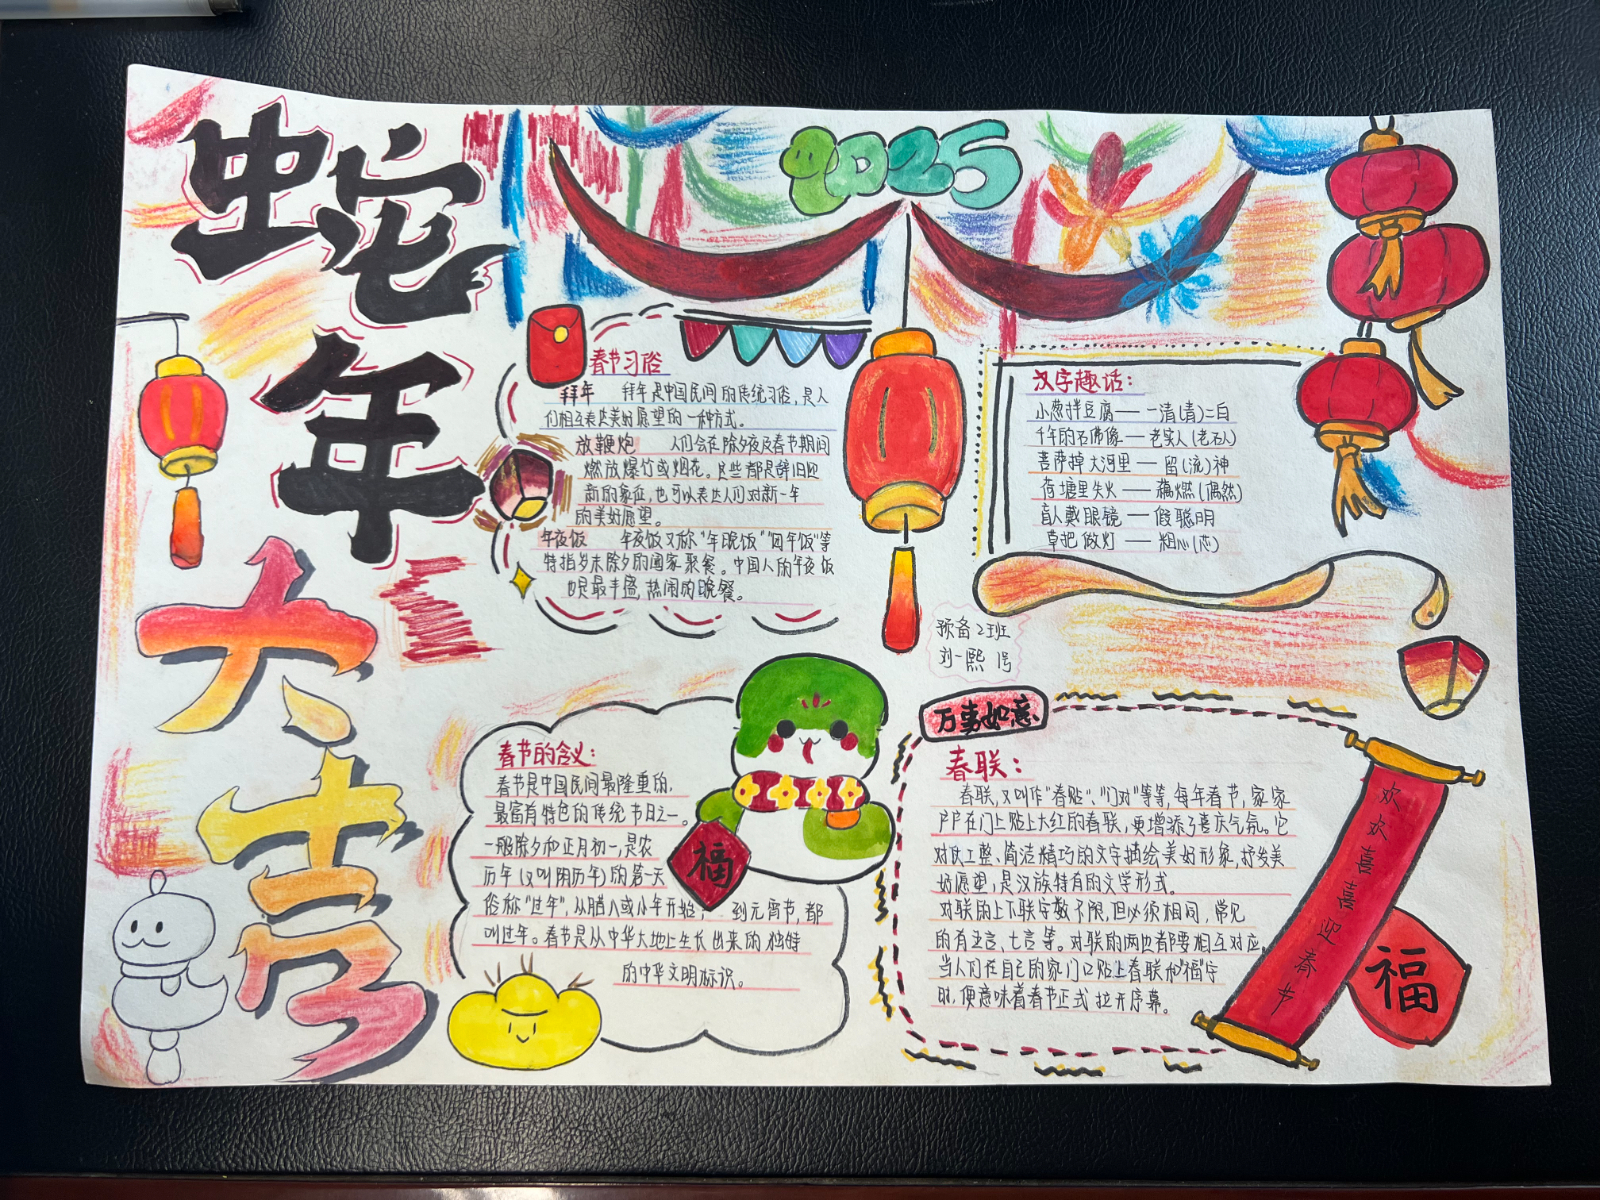 蛇
年
大
吉
2025
春节习俗
拜年 拜年是中国民间的传统习俗,是人
们相互表达美好愿望的一种方式。
放鞭炮 人们会在除夕夜及春节期间
燃放爆竹或烟花。这些都是辞旧迎
新的象征,也可以表达人们对新一年
的美好愿望。
年夜饭 年夜饭又称"年晚饭""团年饭"等
特指岁末除夕的阖家聚餐。中国人的年夜饭
也是最丰盛,热闹的晚餐。
汉字趣话:
小葱拌豆腐——一清(青)二白
千年的石佛像——老实人(老石人)
菩萨掉大河里——留(流)神
荷塘里失火——藕燃(偶然)
盲人戴眼镜——假聪明
草把做灯——粗心(芯)
预备2班
刘一熙 1号
春节的含义:
春节是中国民间最隆重的,
最富有特色的传统节日之一。
一般除夕和正月初一,是农
历年(又叫阴历年)的第一天
俗称"过年",从腊八或小年开始, 到元宵节,都
叫过年。春节是从中华大地上生长出来的独特
的中华文明标识。
福
万事如意
春联:
春联,又叫作"春贴"、"门对"等等,每年春节,家家
户户在门上贴上大红的春联,更增添了喜庆气氛。它
对仗工整、简洁精巧的文字描绘美好形象,抒发美
好愿望,是汉族特有的文学形式。
对联的上下联字数不限,但必须相同,常见
的有五言、七言等。对联的两边都要相互对应。
当人们在自己的家门口贴上春联和"福"字
时,便意味着春节正式拉开序幕。
欢欢喜喜迎春节
福